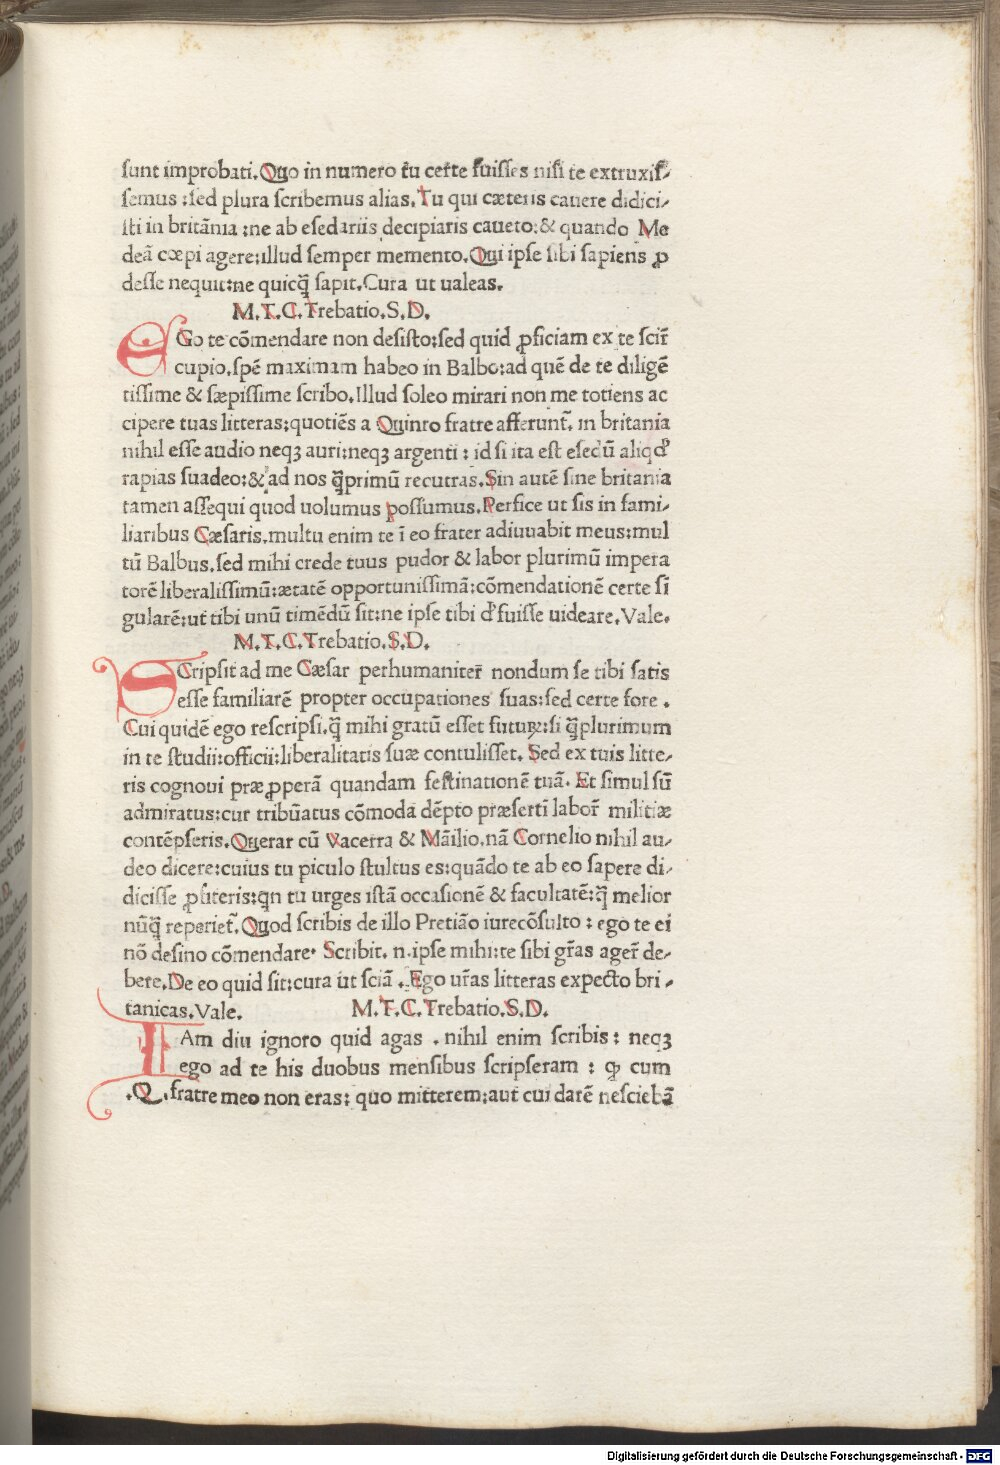 sunt improbati. Quo in numero tu certe fuisses nisi te extruxis/
semus : sed plura scribemus alias. Tu qui cæteris cauere didici/
sti in britānia : ne ab esedariis decipiaris caueto: & quando Me
deā cœpi agere: illud semper memento. Qui ipse sibi sapiens ꝓ
desse nequit: ne quicq̄ sapit. Cura ut ualeas.
M. T. C. Trebatio. S. D.
EGo te cōmendare non desisto: sed quid ꝓficiam ex te scir̄
cupio. spē maximam habeo in Balbo: ad quē de te diligē
tissime & sæpissime scribo. Illud soleo mirari non me totiens ac
cipere tuas litteras: quotiēs a Quinto fratre afferunt̄. in britania
nihil esse audio neqꝫ auri: neqꝫ argenti : id si ita est esedū aliqd̓
rapias suadeo: & ad nos q̄primū recurras. Sin autē sine britania
tamen assequi quod uolumus possumus. Perfice ut sis in fami/
liaribus Cæsaris. multu enim te ī eo frater adiuuabit meus: mul
tū Balbus. sed mihi crede tuus pudor & labor plurimū impera
torē liberalissimū: ætatē opportunissimā: cōmendationē certe si
gularē: ut tibi unū timēdū sit: ne ipse tibi d̓fuisse uideare. Vale.
M. T. C. Trebatio. S. D.
SCripsit ad me Cæsar perhumaniter̄ nondum se tibi satis
esse familiarē propter occupationes suas: sed certe fore .
Cui quidē ego rescripsi. q̄ mihi gratū esset futuꝝ: si q̄plurimum
in te studii: officii: liberalitatis suæ contulisset. Sed ex tuis litte/
ris cognoui præꝓperā quandam festinationē tuā. Et simul sū
admiratus: cur tribūatus cōmoda dēpto præsertī labor̄ militiæ
contēpseris. Querar cū vacerra & Māilio. nā Cornelio nihil au/
deo dicere: cuius tu piculo stultus es: quādo te ab eo sapere di/
dicisse ꝓfiteris: qn tu urges istā occasionē & facultatē: q̄ melior
nūq̄ reperiet̄. Quod scribis de illo Pretiāo iurecōsulto : ego te ei
nō desino cōmendare. Scribit. n. ipse mihi: te sibi gr̄as ager̄ de/
bere. De eo quid sit: cura ut sciā . Ego ur̄as litteras expecto bri /
tanicas. Vale. M. T. C. Trebatio. S. D.
IAm diu ignoro quid agas . nihil enim scribis : neqꝫ
ego ad te his duobus mensibus scripseram : ꝙ cum
.Q. fratre meo non eras: quo mitterem: aut cui darē nesciebā
Digitalisierung gefördert durch die Deutsche Forschungsgemeinschaft - DFG